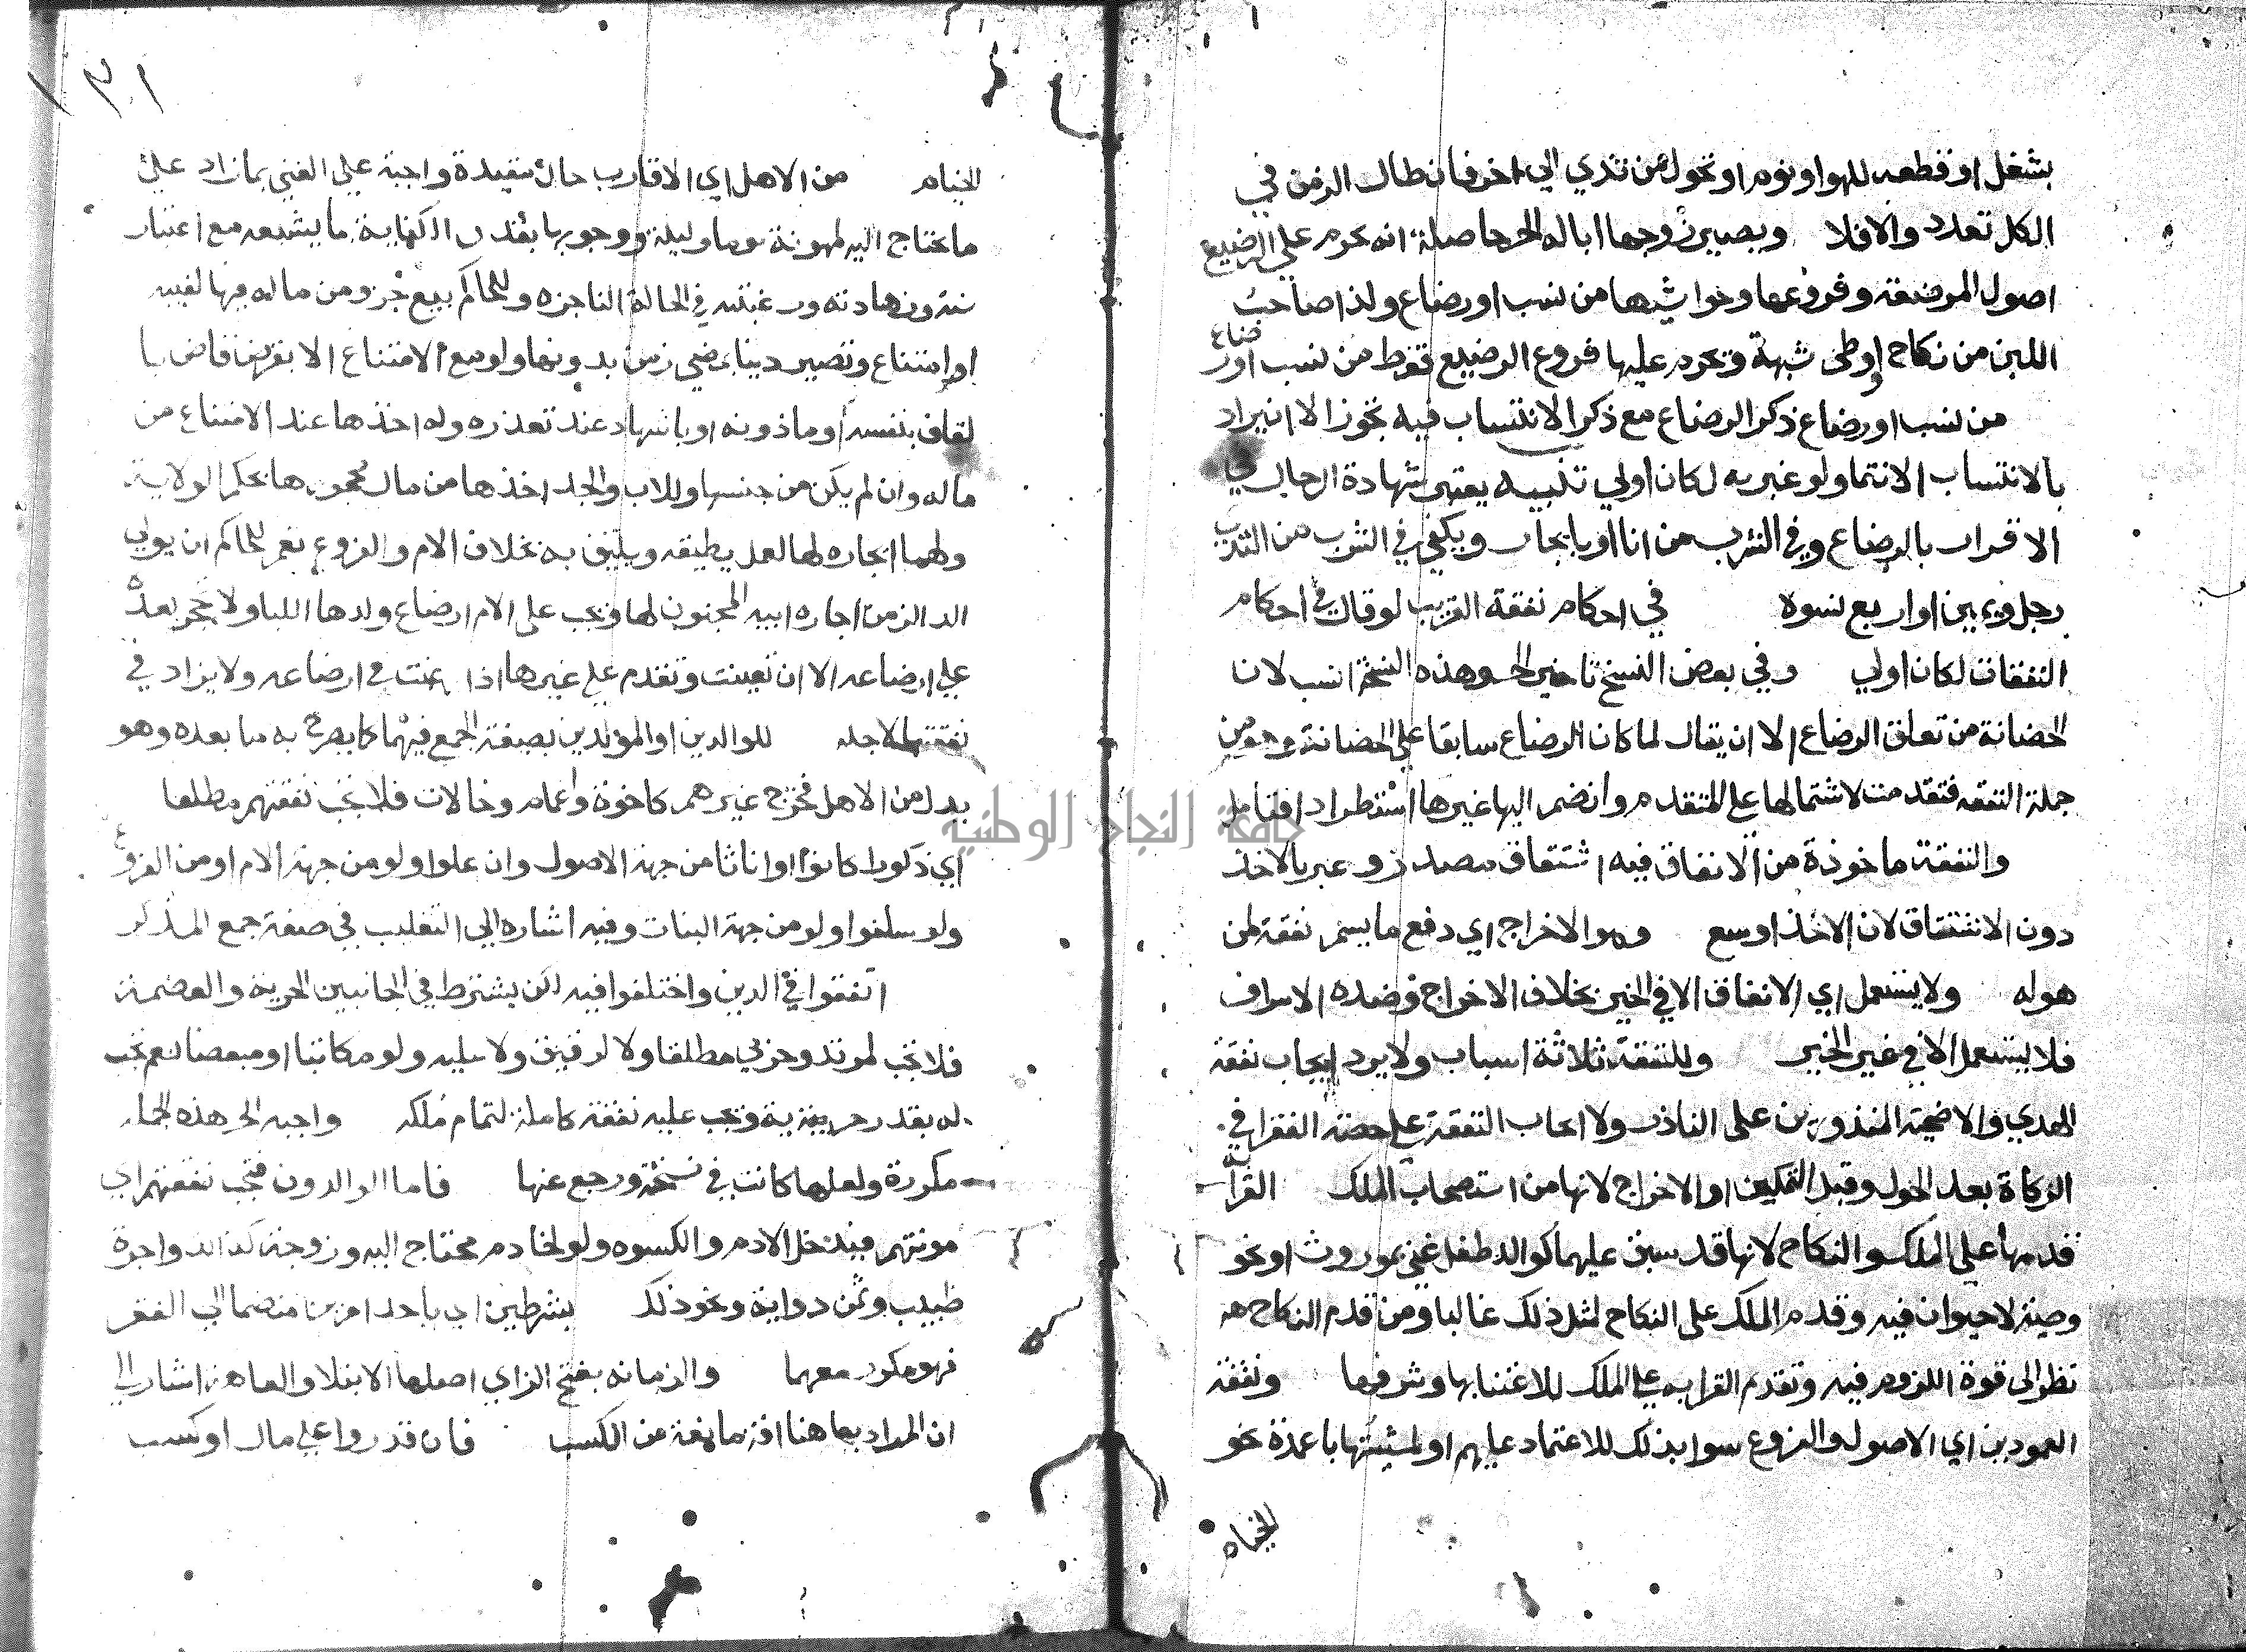 بشغل او قطعه للهو او نوم او تحول من ثدي الي اخر فان طال الزمن في
الكل تعدد والا فلا ويصير زوجها ابا له الخ حاصله انه تحرم علي الرضيع
اصول المرضعة وفروعها وحواشيها من نسب او رضاع ولذا صاحب
اللبن من نكاح او وطئ شبهة وتحرم عليها فروع الرضيع فقط من نسب او رضاع
من نسب او رضاع ذكر الرضاع مع ذكر الانتساب فيه تجوز الا ان يراد
بالانتساب الانتما ولو عبر به لكان اولي تنبيه يعتبر شهادة الرجال في
الاقرار بالرضاع وفي الشرب من انا او بايجار ويكفي في الشرب من الثدي
رجل ويمين او اربع نسوة في احكام نفقة القريب لو قال في احكام
النفقات لكان اولي وفي بعض النسخ تاخير الخ وهذه النسخة انسب لان
الحضانة من تعلق الرضاع الا ان يقال لما كان الرضاع سابقا علي الحضانة وهو من
جملة النفقه فتقدمت لاشتمالها علي المتقدم وانضم اليها غيرها استطرادا فتامل
والنفقة ماخوذة من الانفاق فيه اشتقاق مصدر وعبر بالاخذ
دون الاشتقاق لان الاخذ اوسع وهو الاخراج اي دفع ما يسمى نفقة لمن
هو له ولا يستعمل اي الانفاق الا في الخير بخلاف الاخراج وضده الاسراف
فلا يستعمل الا في غير الخير وللنفقة ثلاثة اسباب ولا يرد ايجاب نفقة
الهدي والاضحية المنذورين علي الناذر ولا ايجاب النفقة علي حصة الفقرا في
الزكاة بعد الحول وقبل التمكين او الاخراج لانها من استصحاب الملك القرابة
قدمها علي الملك والنكاح لانها قد سبق عليهما كوالد طفل غني بموروث او نحو
وصية لا حيوان فيه وقدم الملك علي النكاح لمثل ذلك غالبا ومن قدم النكاح
نظر الى قوة اللزوم فيه وتقدم القرابه علي الملك للاعتنا بها وشرفها ونفقة
العمودين اي الاصول والفروع سوا بذلك للاعتماد عليهم او لشبهها باعمدة نحو
الخيام
١٣١
الخيام من الاهل اي الاقارب حال مقيدة واجبة علي الغني بما زاد علي
ما يحتاج اليه لمونة يوما وليلة ووجوبها بقدر الكفاية ما يشبعه مع اعتبار
سنه وزهادته ورغبته في الحالة الناجزه وللحاكم بيع جزو من ماله فيها لغيبه
او امتناع وتصير دينا بمضي زمن بدونها ولو مع الامتناع الا بفرض قاض
بنفسه او ماذونه او باشهاد عند تعذره وله اخذها عند الامتناع من
ماله وان لم يكن من جنسها وللاب والجد اخذها من مال محجورها بحكم الولاية
ولهما ايجاره لها لعمل يطيقه ويليق به بخلاف الام والفروع نعم للحاكم ان يولي
الولد الزمن اجاره ابيه المجنون لها وتجب علي الام ارضاع ولدها اللبا ولا تجبر بعده
علي ارضاعه الا ان تعينت وتقدم علي غيرها اذا رغبت في ارضاعه ولا يزاد في
نفقتها لاجله للوالدين او المولدين بصيغة الجمع فيهما كما يصرح به ما بعده وهو
بدل من الاهل فخرج غيرهم كاخوة واعمام وخالات فلا تجب نفقتهم مطلقا
اي ذكورا كانوا او اناثا من جهة الاصول وان علوا ولو من جهة الام او من الفروع
ولو سفلوا ولو من جهة البنات وفيه اشاره الي التغليب في صيغة جمع المذكر
اتفقوا في الدين واختلفوا فيه لكن يشترط في الجانبين الحرية والعصمة
فلا تجب لمرتد وحربي مطلقا ولا لرقيق ولا عليه ولو مكاتبا او مبعضا نعم تجب
له بقدر حريته وتجب عليه نفقة كاملة لتمام ملكه واجبه الخ هذه الجملة
مكررة ولعلها كانت في نسخة ورجع عنها فاما الوالدون فتجب نفقتهم اي
مونتهم فيدخل الادم والكسوه ولو لخادم محتاج اليه وزوجة كذلك واجرة
طبيب وثمن دوا ونحو ذلك بشرطين اي باحد امرين منضما الي الفقر
فهو مكرر معهما والزمانه بفتح الزاي اصلها الابتلا والعاهة اشار الي
ان المراد بها هنا افة مانعة من الكسب فان قدروا علي مال او كسب